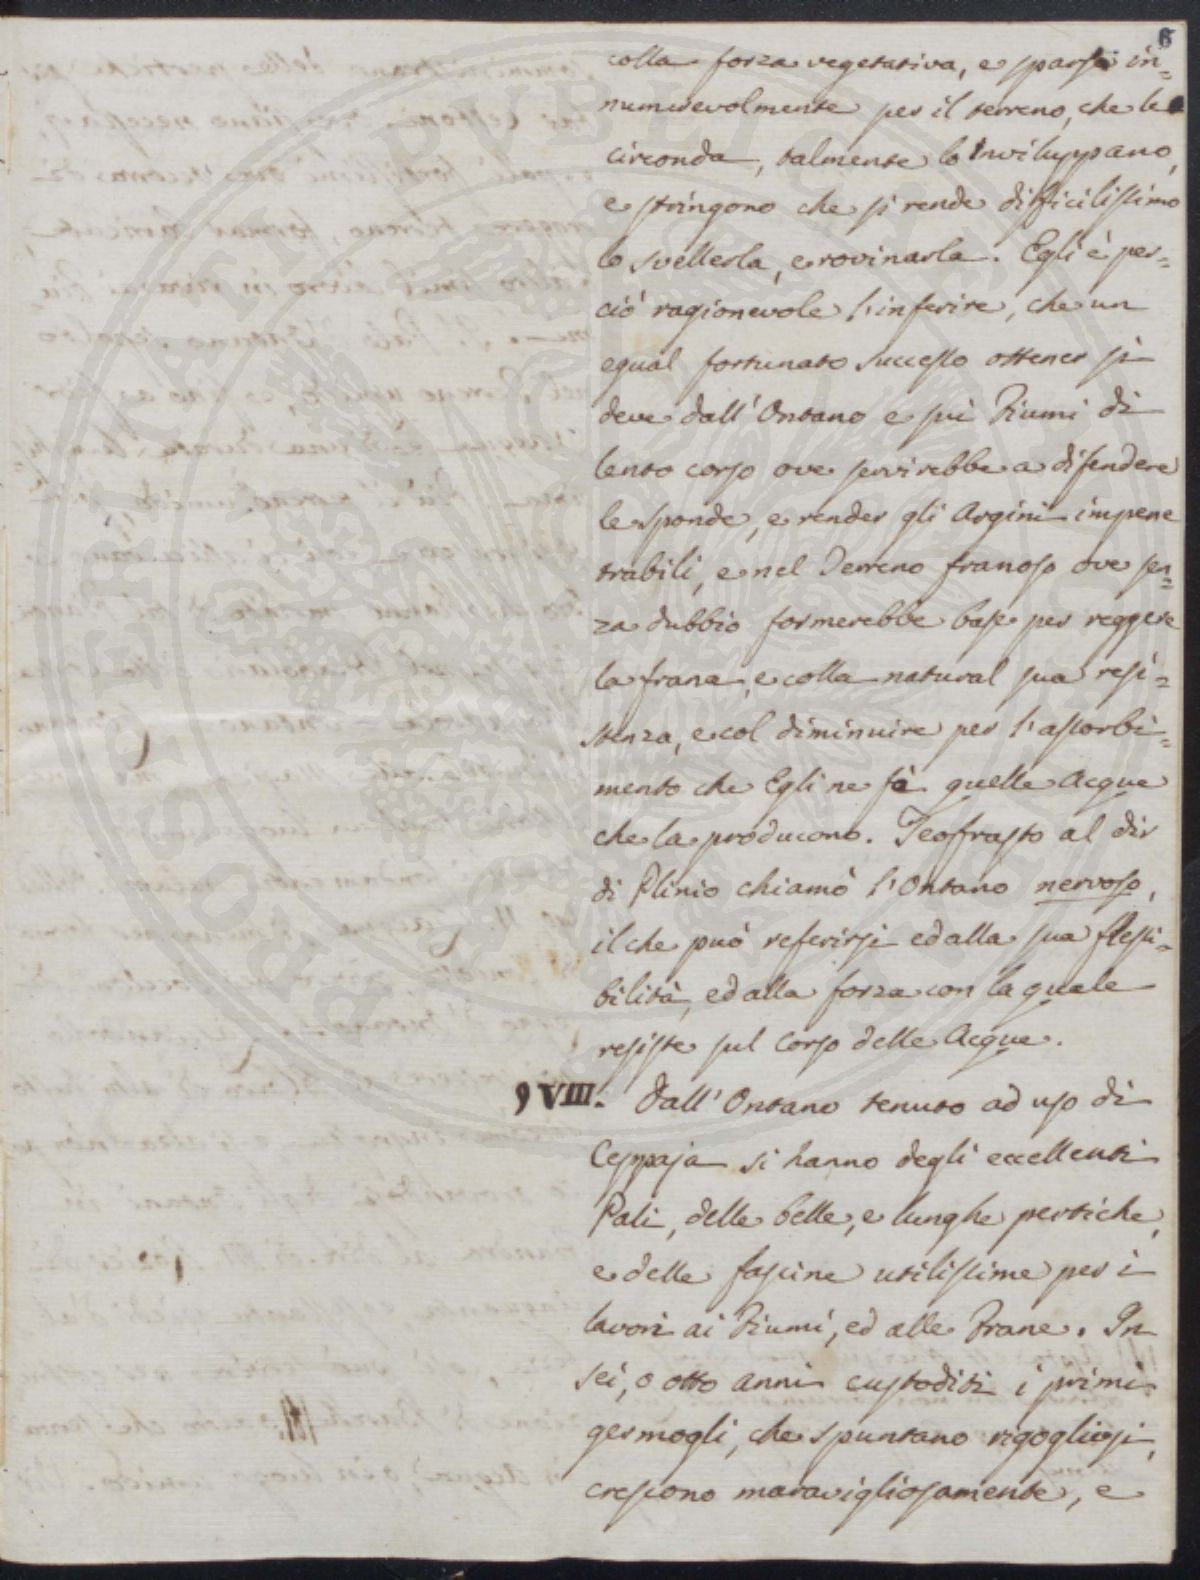 6
colla forza vegetativa, e sparsi in=
numerevolmente per il terreno, che le
circonda, talmente lo inviluppano,
e stringono che si rende dificilissimo
lo svellerla, e rovinarla. Egli è per=
ciò ragionevole l'inferire, che un
egual fortunato successo ottener si
deve dall'Ontano e sui Fiumi di
lento corso ove servirebbe a difendere
le sponde, e render gli Argini impene
trabili, e nel Terreno franoso ove sen=
za dubbio formerebbe base per reggere
la frana, e colla natural sua resi=
stenza, e col diminuire per l'assorbi=
mento che Egli ne fà quelle Acque
che la producono. Teofrasto al dir
di Plinio chiamò l'Ontano nervoso,
il che può referirsi ed alla sua flessi=
bilità, ed alla forza con la quale
resiste sul Corso delle Acque.
§ VIII. Dall'Ontano tenuto ad uso di
Ceppaja si hanno degli eccellenti
Pali, delle belle, e lunghe pertiche,
e delle fascine utilissime per i
lavori ai Fiumi, ed alle Frane. In
sei, o otto anni custoditi i primi
germogli, che spuntano rigogliosi,
crescono maravigliosamente, e